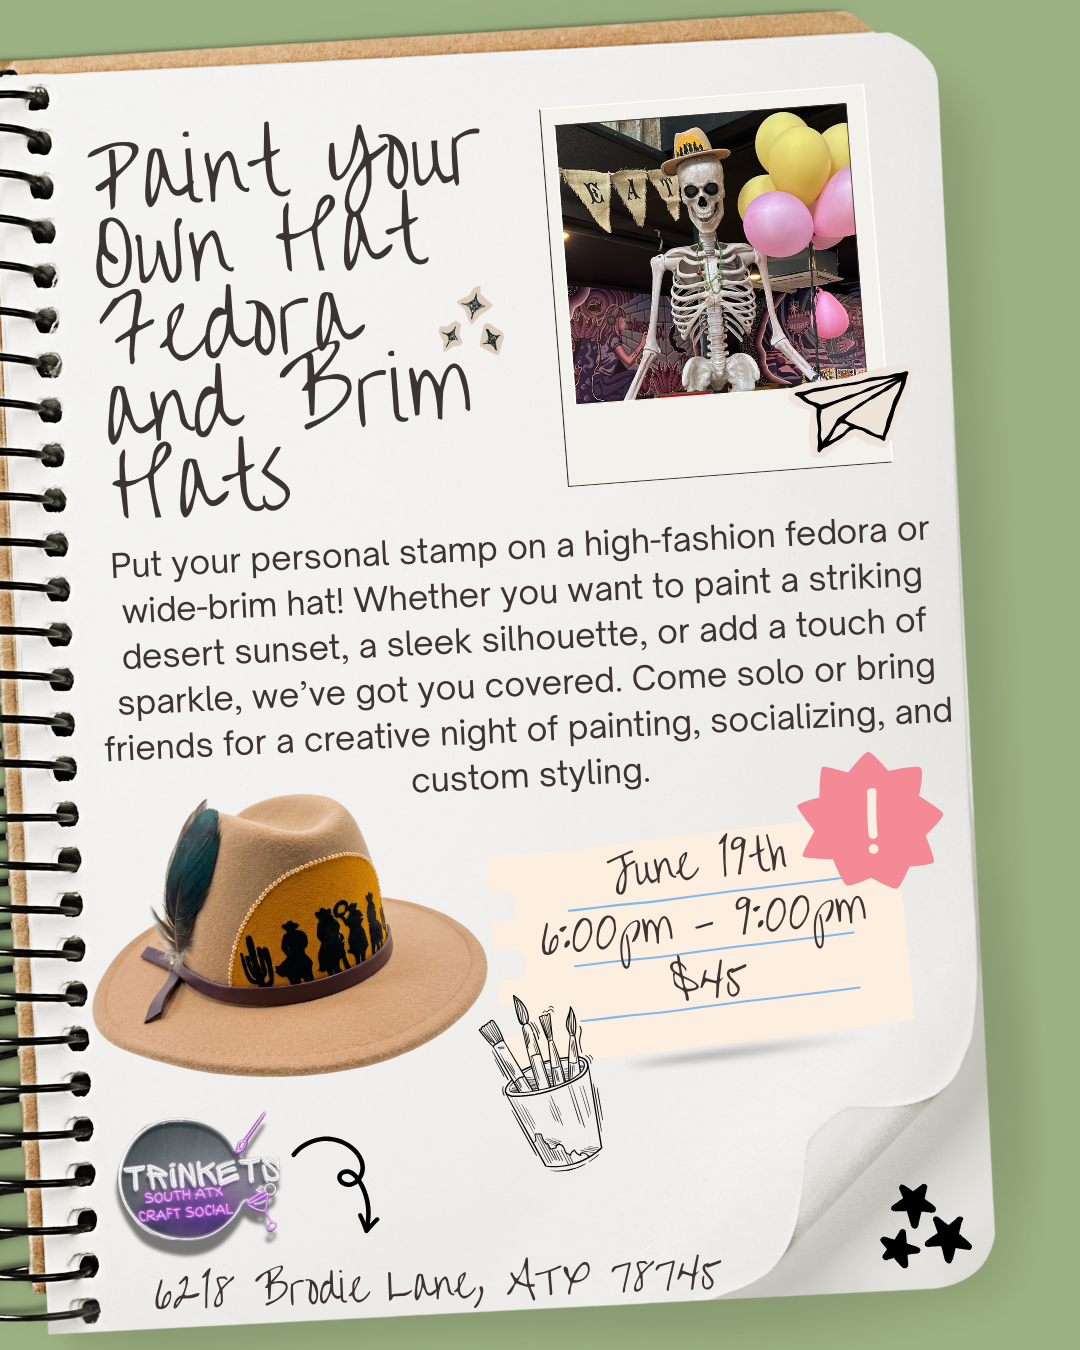 Paint your
Own Hat
Fedora
and Brim
Hats
EAT
Put your personal stamp on a high-fashion fedora or
wide-brim hat! Whether you want to paint a striking
desert sunset, a sleek silhouette, or add a touch of
sparkle, we’ve got you covered. Come solo or bring
friends for a creative night of painting, socializing, and
custom styling.
!
June 19th
6:00pm - 9:00pm
$45
TRINKETS
SOUTH ATX
CRAFT SOCIAL
6218 Brodie Lane, ATX 78745